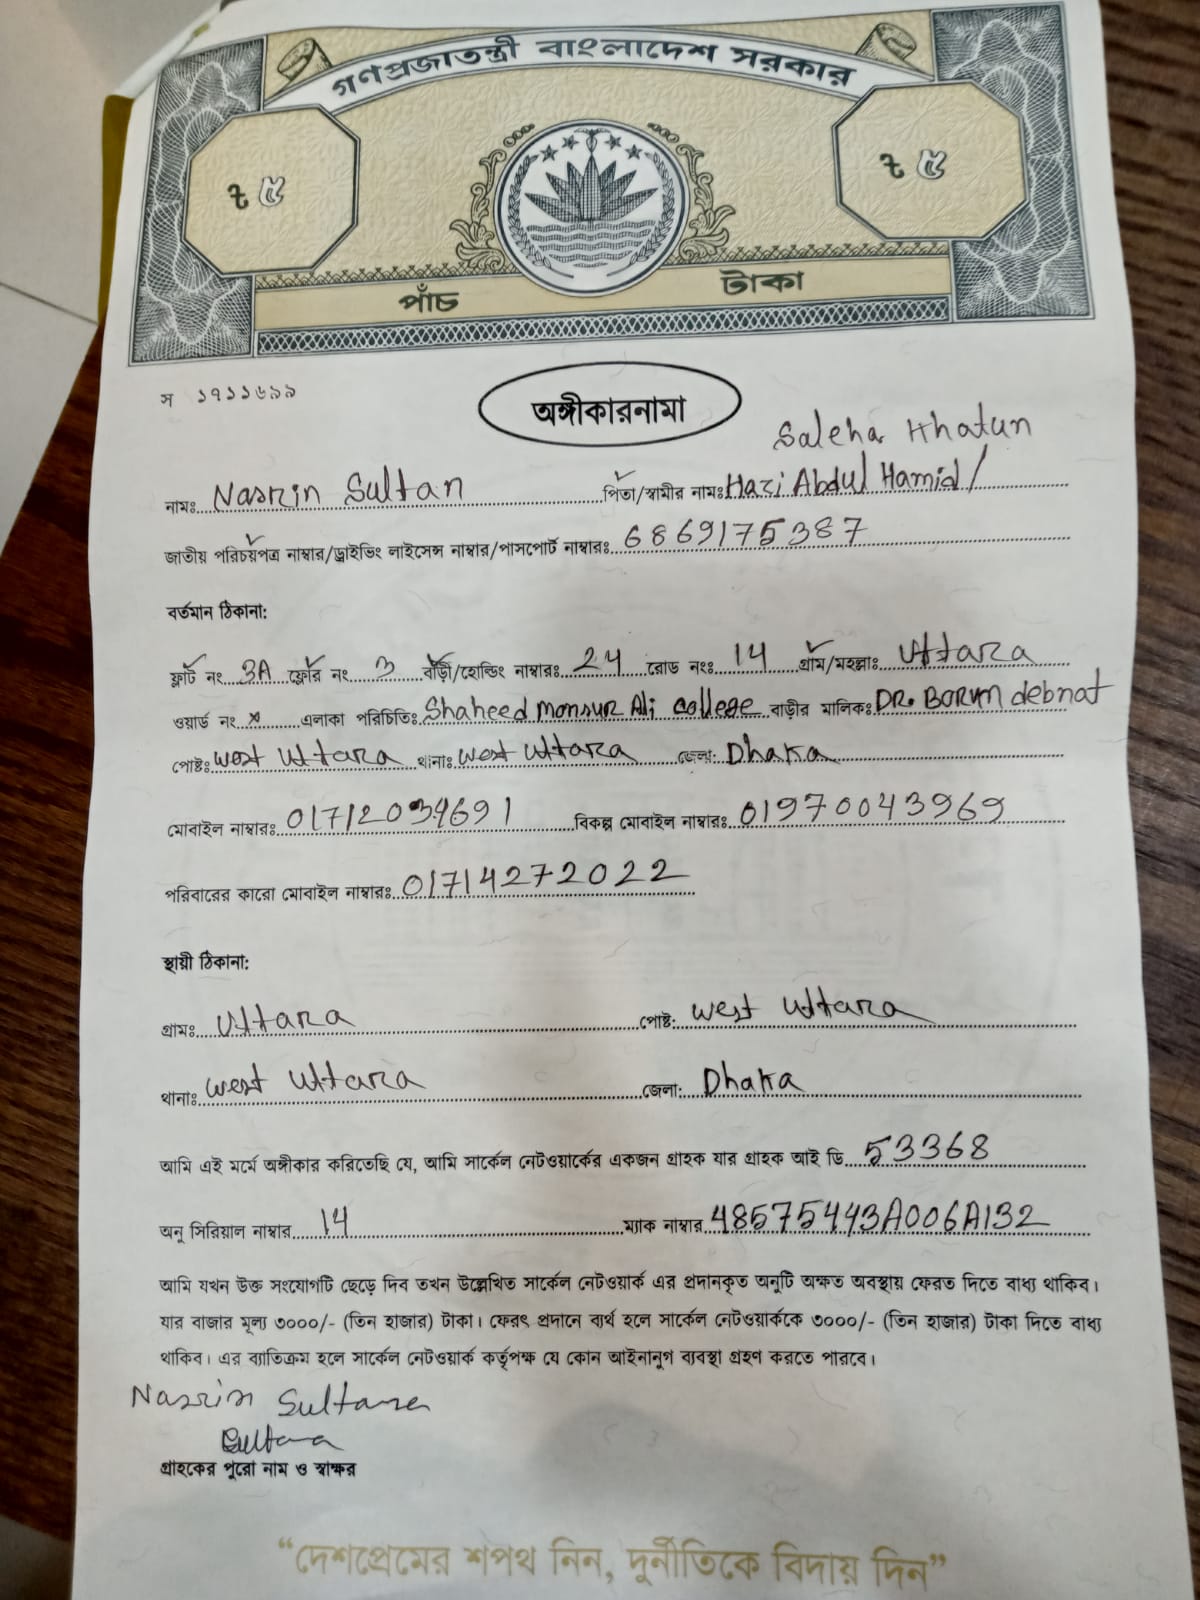 গণপ্রজাতন্ত্রী বাংলাদেশ সরকার
৳ ৫ ৳ ৫
পাঁচ টাকা
স ১৭১১৬৯৯
অঙ্গীকারনামা
Saleha Khatun
নামঃ Nasrin Sultan পিতা/স্বামীর নামঃ Hazi Abdul Hamid/
জাতীয় পরিচয়পত্র নাম্বার/ড্রাইভিং লাইসেন্স নাম্বার/পাসপোর্ট নাম্বারঃ 6869175387
বর্তমান ঠিকানা:
ফ্লাট নং 3A ফ্লোর নং 3 বাড়ী/হোল্ডিং নাম্বারঃ 24 রোড নংঃ 14 গ্রাম/মহল্লাঃ Uttara
ওয়ার্ড নং x এলাকা পরিচিতিঃ Shaheed monsur Ali college বাড়ীর মালিকঃ DR. debnat
পোষ্টঃ west Uttara থানাঃ west Uttara জেলা: Dhaka
মোবাইল নাম্বারঃ বিকল্প মোবাইল নাম্বারঃ 01970043969
পরিবারের কারো মোবাইল নাম্বারঃ 01714272022
স্থায়ী ঠিকানা:
গ্রামঃ Uttara পোষ্ট: west Uttara
থানাঃ west Uttara জেলা: Dhaka
আমি এই মর্মে অঙ্গীকার করিতেছি যে, আমি সার্কেল নেটওয়ার্কের একজন গ্রাহক যার গ্রাহক আই ডি 53368
অনু সিরিয়াল নাম্বার 14 ম্যাক নাম্বার 48575443A006A132
আমি যখন উক্ত সংযোগটি ছেড়ে দিব তখন উল্লেখিত সার্কেল নেটওয়ার্ক এর প্রদানকৃত অনুটি অক্ষত অবস্থায় ফেরত দিতে বাধ্য থাকিব।
যার বাজার মূল্য ৩০০০/- (তিন হাজার) টাকা। ফেরৎ প্রদানে ব্যর্থ হলে সার্কেল নেটওয়ার্ককে ৩০০০/- (তিন হাজার) টাকা দিতে বাধ্য
থাকিব। এর ব্যতিক্রম হলে সার্কেল নেটওয়ার্ক কর্তৃপক্ষ যে কোন আইনানুগ ব্যবস্থা গ্রহণ করতে পারবে।
Nasrin Sultana
Sultana
গ্রাহকের পুরো নাম ও স্বাক্ষর
“দেশপ্রেমের শপথ নিন, দুর্নীতিকে বিদায় দিন”